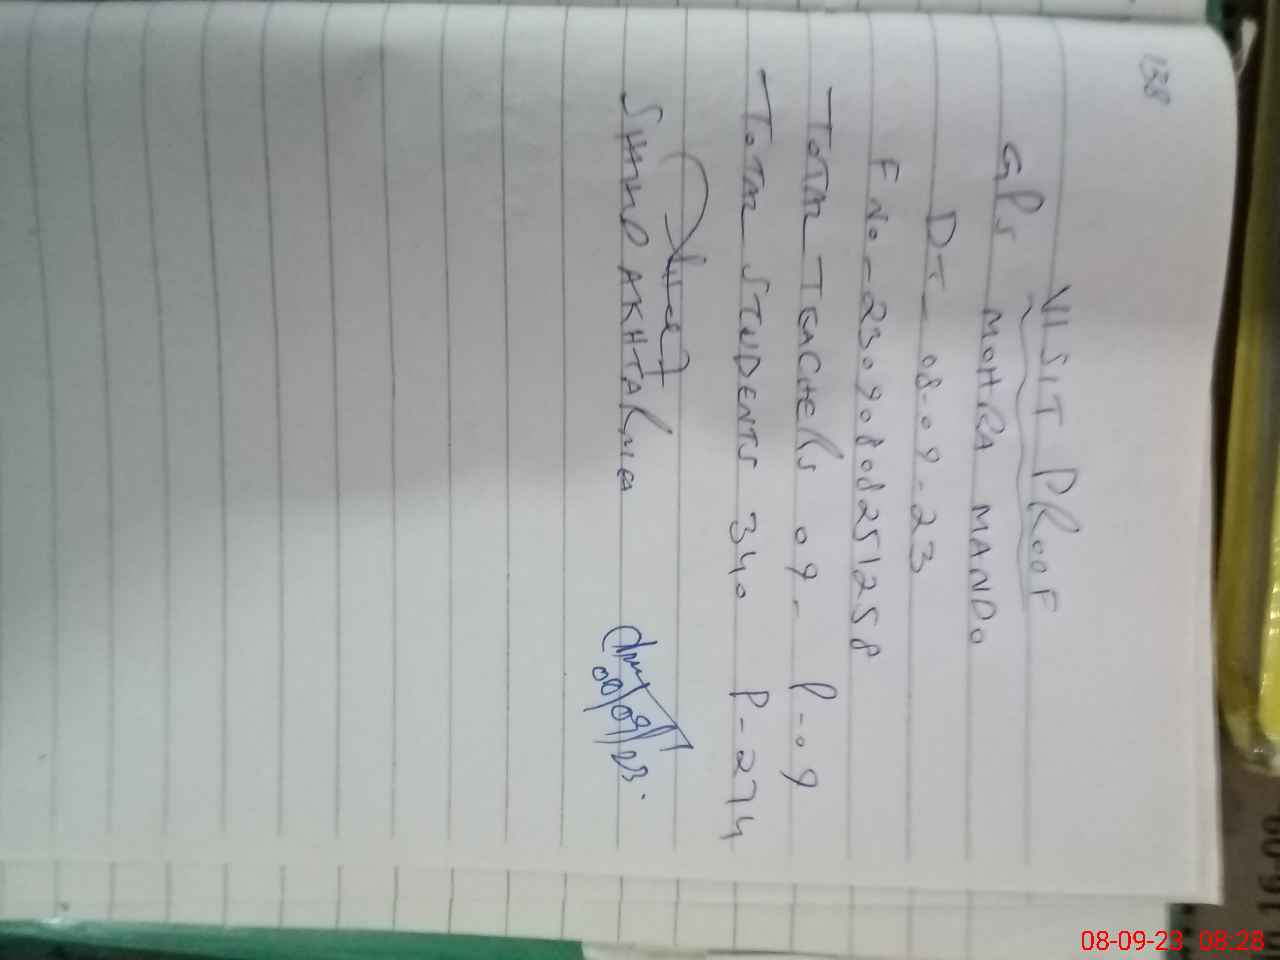 138
VISIT PROOF
GPS MOHRA MANDO
DT- 08-09-23
F No - 23090808251258
TOTAL TEACHERS 09- P-09
TOTAL STUDENTS 340 P-274
08/09/23.
08-09-23 08:28